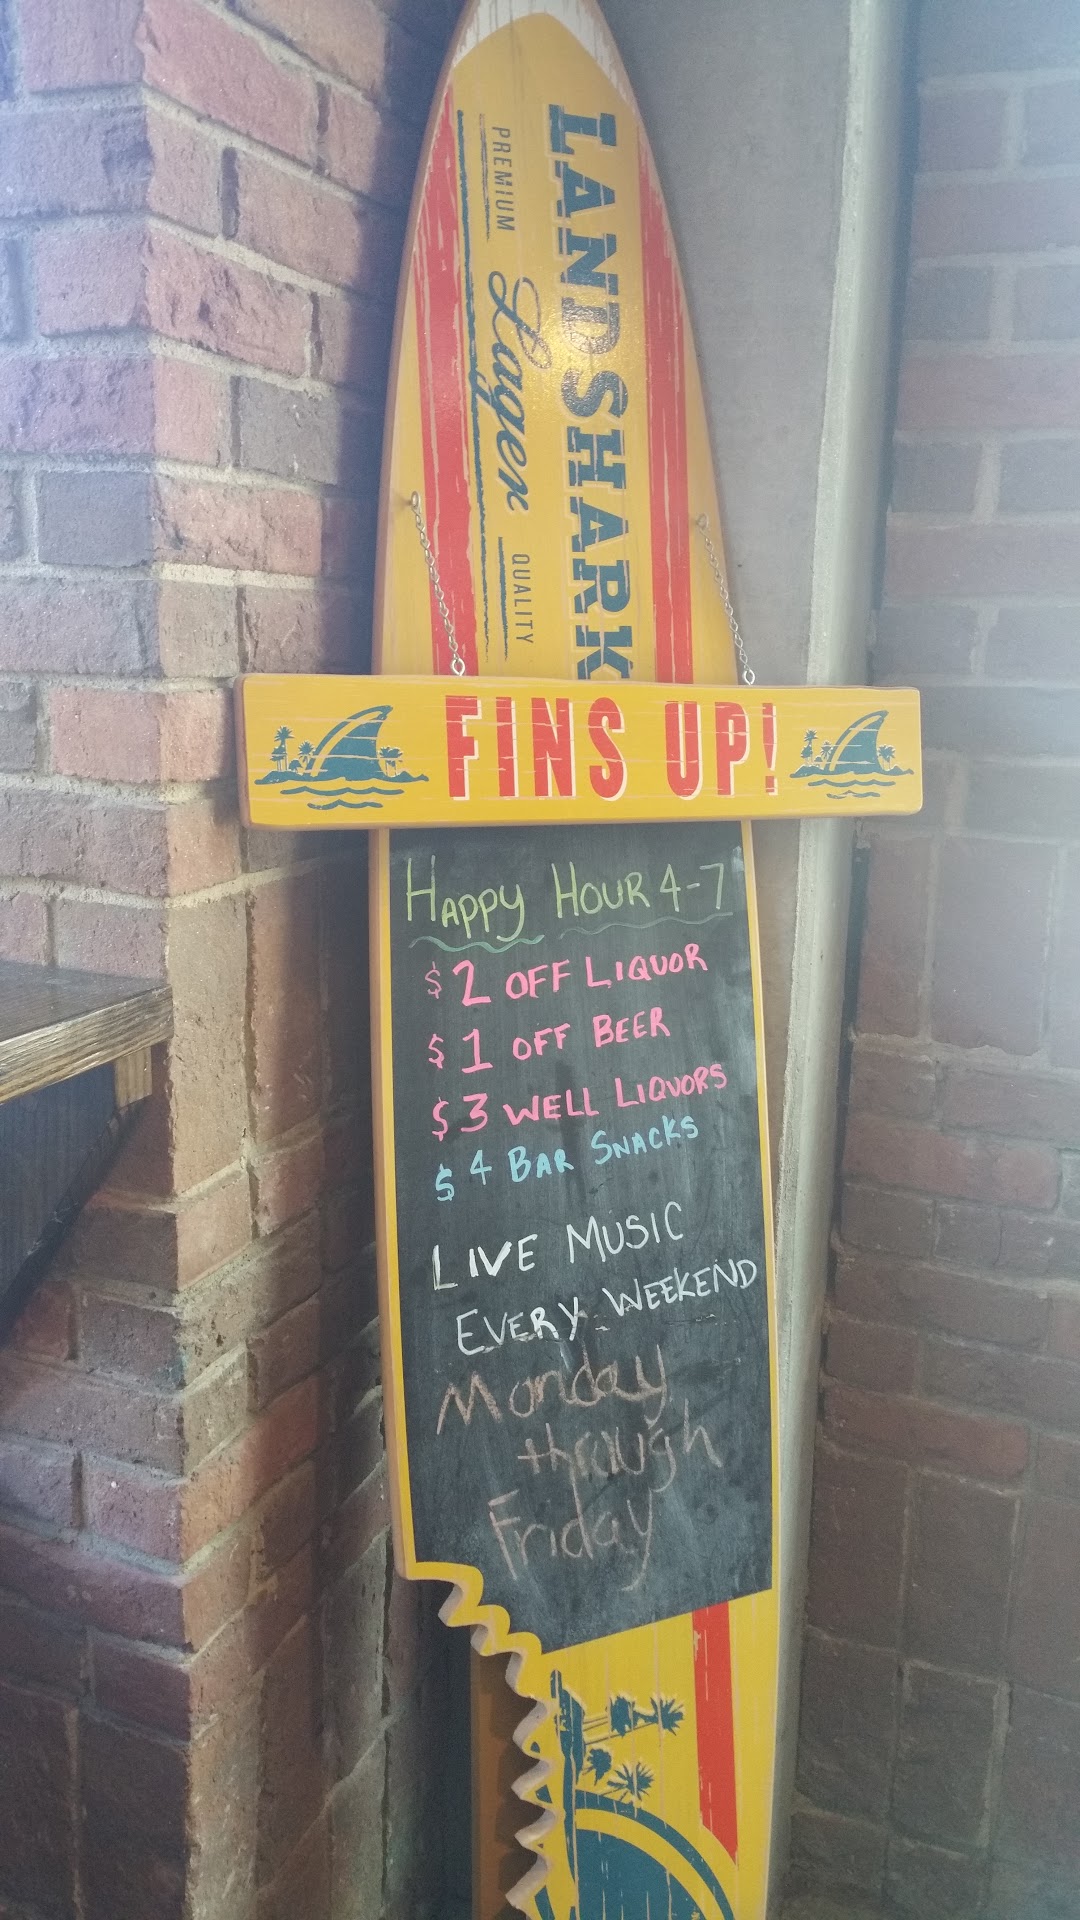 LANDSHARK
PREMIUM Lager QUALITY
FINS UP!
HAPPY HOUR 4-7
$2 OFF LIQUOR
$1 OFF BEER
$3 WELL LIQUORS
$4 BAR SNACKS
LIVE MUSIC
EVERY WEEKEND
Monday
through
Friday